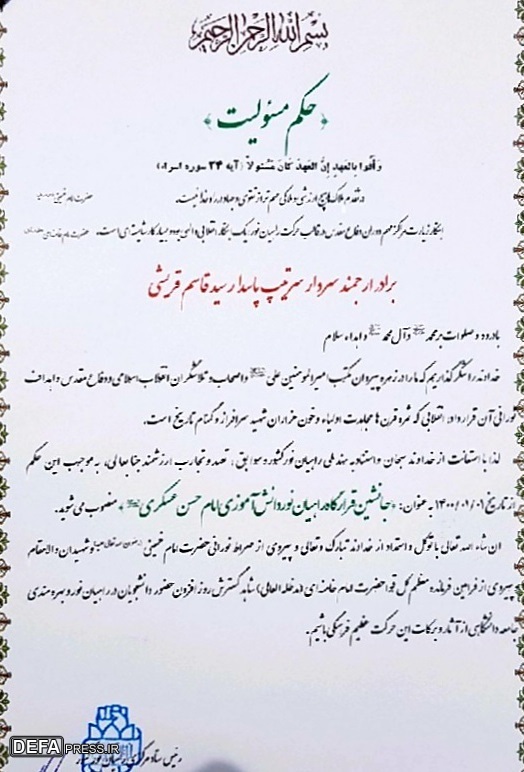 بسم الله الرحمن الرحیم
﴿ حکم مسئولیت ﴾
وَ أَوفُوا بِالعَهدِ إِنَّ العَهدَ كَانَ مَسْئولاً (آیه ۳۴ سوره اسراء)
در تقدم ملاک‌ها هیچ ارزشی و ملاکی مهم‌تر از تقوی و جهاد در راه خدا نیست.
ابتکار زیارت مراکز مهم دوران دفاع مقدس در قالب حرکت راهیان نور یک ابتکار انقلابی و الهی بود و بسیار کار شایسته‌ای است.
برادر ارجمند سردار سرتیپ پاسدار سید قاسم قریشی
با درود و صلوات بر محمد و آل محمد و اهداء سلام
خداوند را شکرگذاریم که ما را در زمره پیروان مکتب امیرالمومنین علی و اصحاب و تلاشگران انقلاب اسلامی و دفاع مقدس و اهداف
نورانی آن قرار داد، انقلابی که ثمره قرن‌ها مجاهدت اولیاء و خون هزاران شهید سرافراز و گمنام تاریخ است.
لذا با استعانت از خداوند سبحان و استناد به سند ملی راهیان نور کشور و سوابق، تعهد و تجارب ارزشمند جنابعالی، به موجب این حکم
از تاریخ ۱۴۰۰/۰۷/۰۱ به عنوان: «جانشین قرارگاه راهیان نور دانش آموزی امام حسن عسکری» منصوب می‌شوید.
ان شاء الله تعالی با توکل و استمداد از خداوند تبارک و تعالی و پیروی از صراط نورانی حضرت امام خمینی و شهیدان والامقام و
پیروی از فرامین فرمانده معظم کل قوا حضرت امام خامنه‌ای (مدظله العالی) شاهد گسترش روز افزون حضور دانشجویان در راهیان نور و بهره مندی
جامعه دانشگاهی از آثار و برکات این حرکت عظیم فرهنگی باشیم.
رئیس ستاد مرکزی راهیان نور
DEFAPRESS.IR